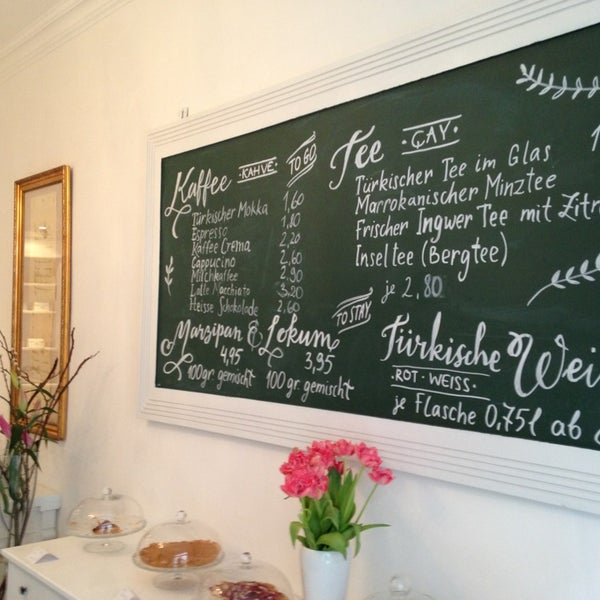 Kaffee ·KAHVE· TO GO
Türkischer Mokka 1,60
Espresso
Kaffee Crema 2,20
Cappucino 2,60
Milchkaffee 2,90
Latte Macchiato 3,20
Heisse Schokolade 2,60
Marzipan & Lokum
4,95 3,95
100gr. gemischt 100gr. gemischt
TO STAY
Tee ·ÇAY·
Türkischer Tee im Glas
Marrokanischer Minztee
Frischer Ingwer Tee mit Zitr
Inseltee (Bergtee)
je 2,80
Türkische Wei
·ROT·WEISS·
je Flasche 0,75l ab